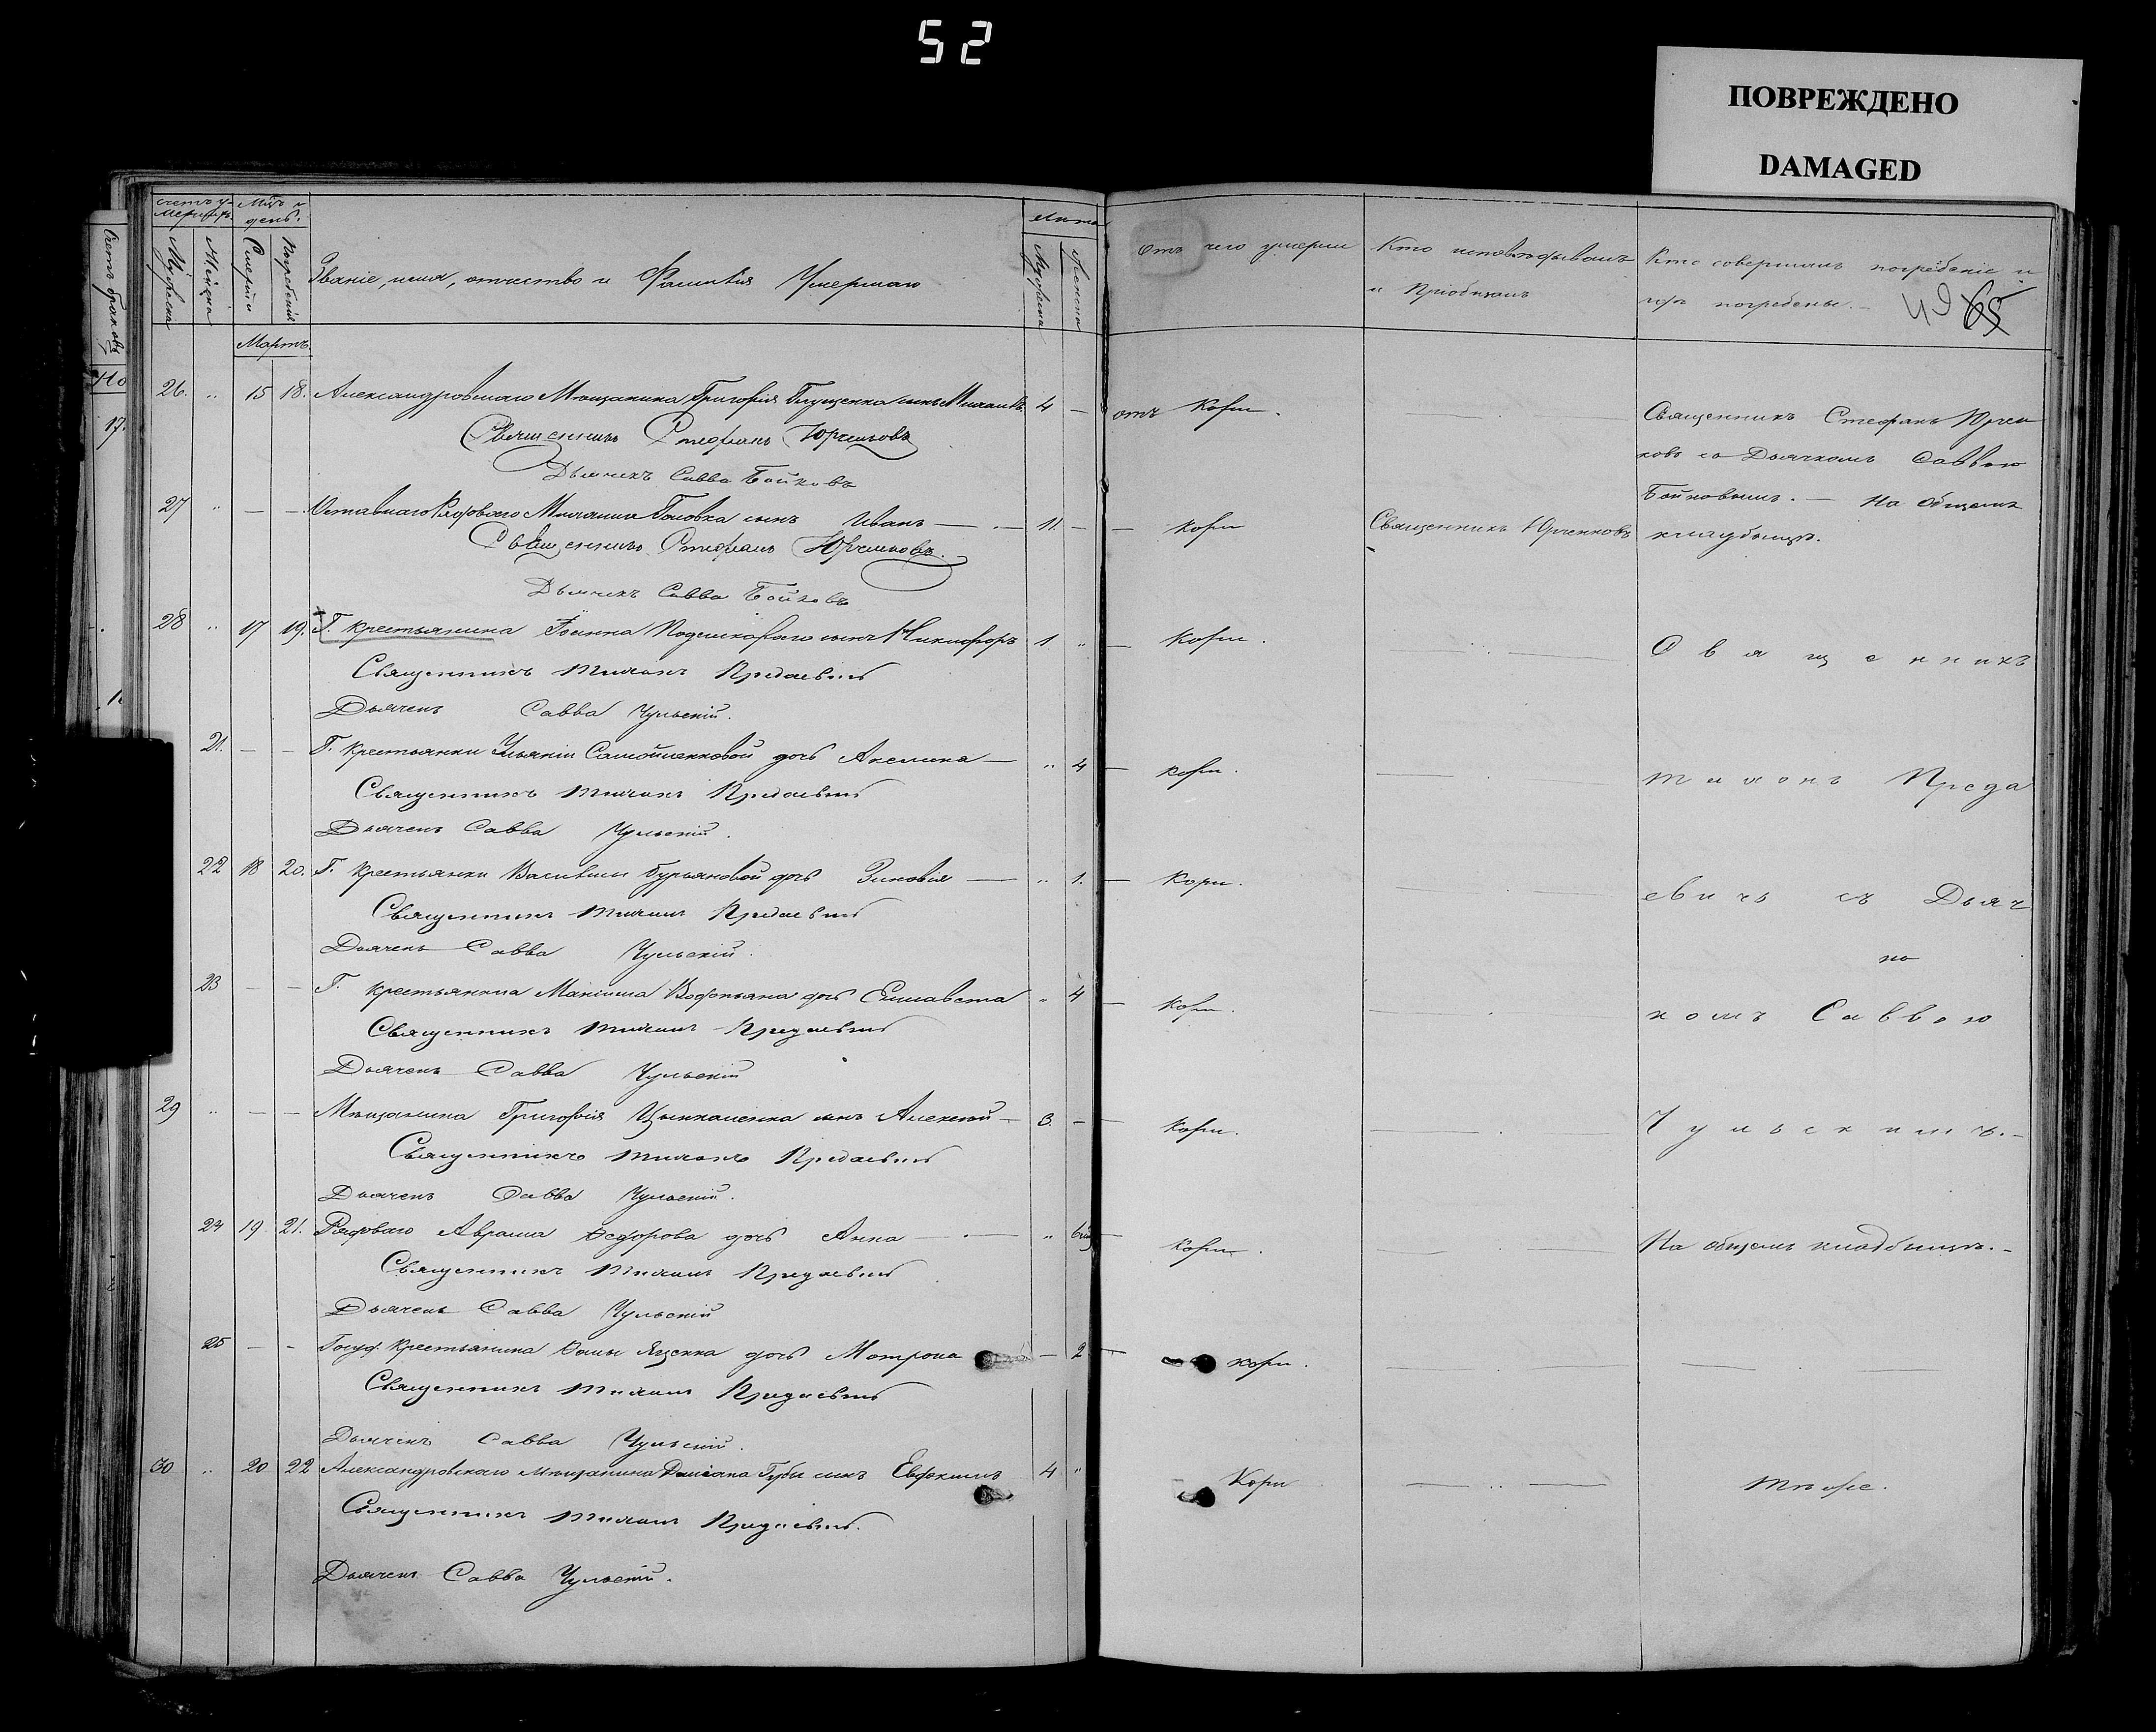 52
ПОВРЕЖДЕНО
DAMAGED
Счетъ у-
мершихъ.
Мѣсяцъ и
день.
Мужеска
Женска
Смерти
Погребенія
Званіе, имя, отчество и Фамилія Умершаго
Лѣта
Мужеска
Женска
Отъ чего умерли
Кто исповѣдывалъ
и Пріобщалъ
Кто совершалъ погребеніе и
гдѣ погребены. —
49 65
Счетъ браковъ
Мартъ.
26. " 15 18. Александровскаго Мѣщанина Григорія Глущенка сынъ Михаилъ 4 — отъ Кори. — Священникъ Стефанъ Юрчен
Священникъ Стефанъ Юрченковъ
ковъ съ Дьячкомъ Саввою
Дьячекъ Савва Бойковъ
Бойковымъ. — На общемъ
27 " — — Отставнаго Рядоваго Михаила Головка сынъ Иванъ — 11. — — Кори Священникъ Юрченковъ кладбищѣ.
Священникъ Стефанъ Юрченковъ.
Дьячекъ Савва Бойковъ
28 " 17 19. Г. крестьянина Іоанна сынъ Никифоръ 1 " — Кори. — С в я щ е н н и к ъ
Священникъ Тихонъ Предаевичъ
Дьячекъ Савва Чульскій.
21. — — Г. Крестьянки Ульяніи Самойленковой дочь Акелина — " 4 — кори. — Т и х о н ъ П р е д а
Священникъ Тихонъ Предаевичъ
Дьячекъ Савва Чульскій.
22 18 20. Г. Крестьянки Василисы Бурьяновой дочь Зиновія — " 1. — Кори. — е в и ч ъ съ Д ь я ч
Священникъ Тихонъ Предаевичъ
Дьячекъ Савва Чульскій.
23 — — Г. крестьянина Максима Водопьяна дочь Елисавета " 4 — Кори. — к о м ъ С а в в о ю
Священникъ Тихонъ Предаевичъ
Дьячекъ Савва Чульскій
29 " — — Мѣщанина Григорія сынъ Алексѣй — 3. — — Кори. — Ч у л ь с к и м ъ. —
Священникъ Тихонъ Предаевичъ
Дьячекъ Савва Чульскій.
24 19 21. Рядоваго Аврама Ѳедорова дочь Анна — " — Кори. — На общемъ кладбищѣ. —
Священникъ Тихонъ Предаевичъ
Дьячекъ Савва Чульскій
25 — — Госуд. Крестьянина Ѳомы Яценка дочь Матрона — 2 — кори. — —
Священникъ Тихонъ Предаевичъ
Дьячекъ Савва Чульскій.
30 " 20 22 Александровскаго мѣщанина Даміана Губы сынъ Евфимъ 4 " Кори — Тѣ же.
Священникъ Тихонъ Предаевичъ.
Дьячекъ Савва Чульскій.